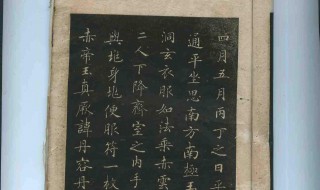 四月五月丙丁之日平
通平坐思南方南極王
洞玄衣服如法乘赤雲
二人下降齋室之內手
與兆身兆便服符一枚
赤帝王真厥諱丹容丹